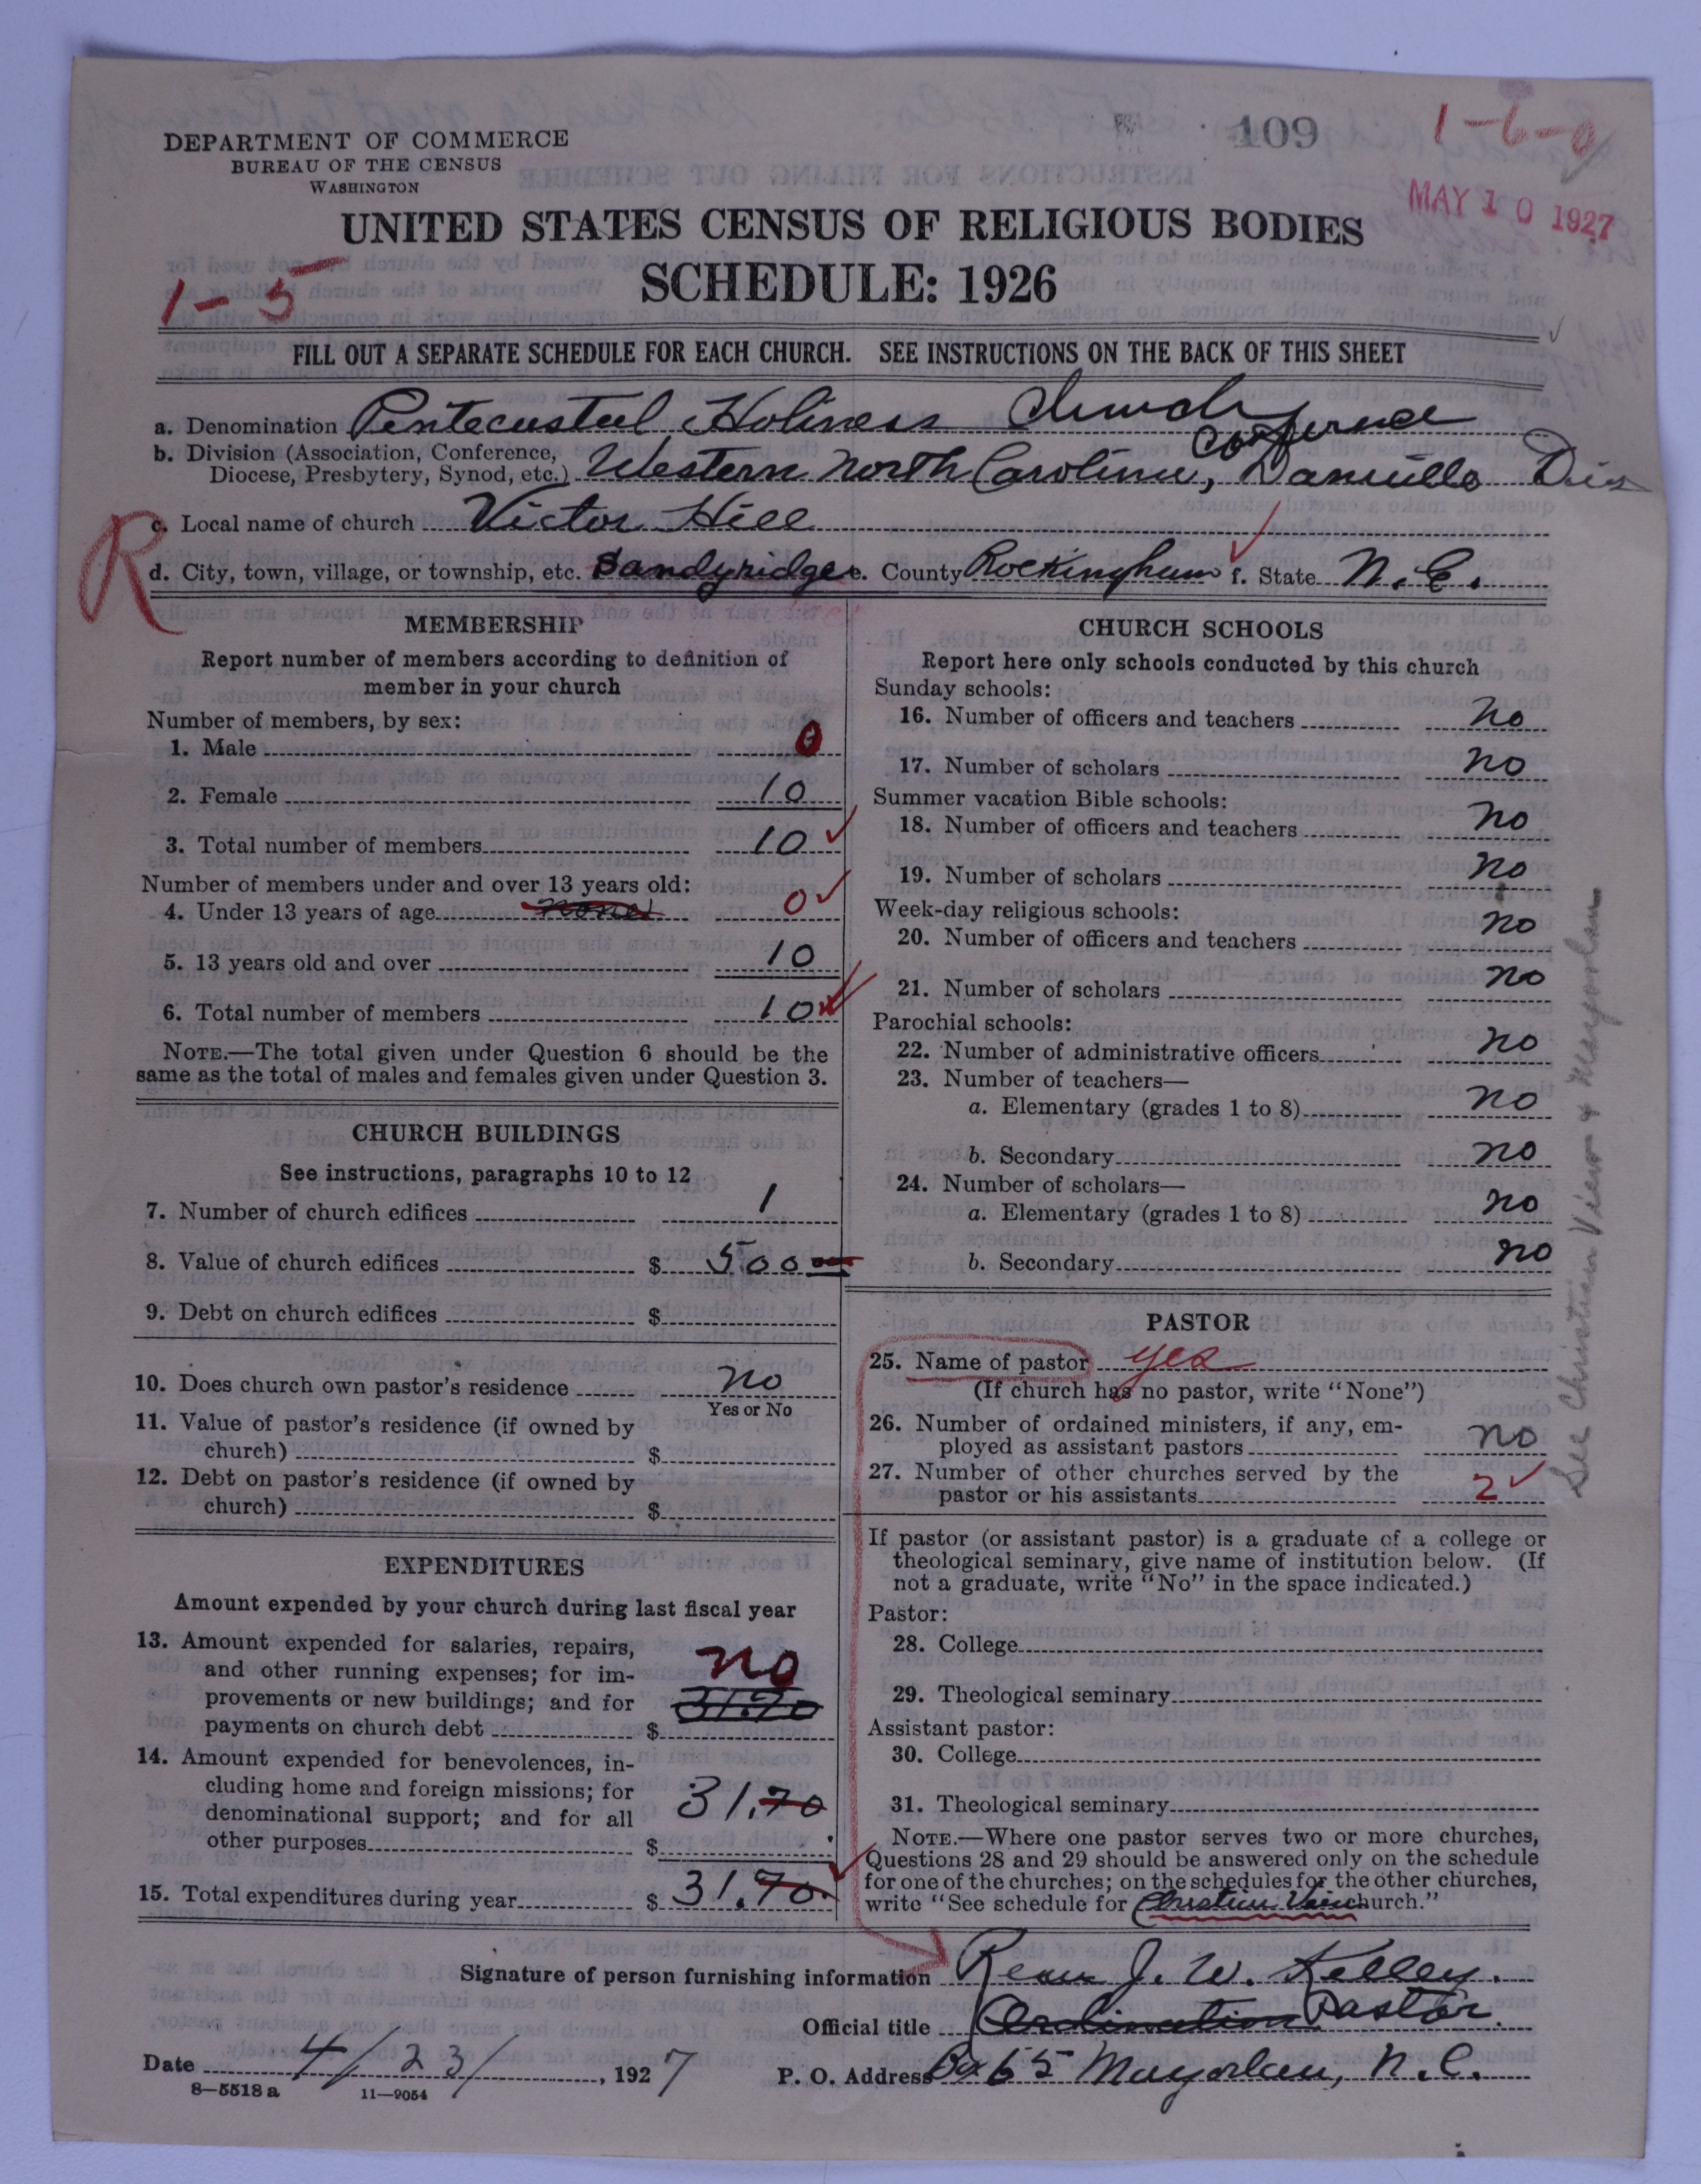 DEPARTMENT OF COMMERCE
BUREAU OF THE CENSUS
WASHINGTON
109
1-6-0
MAY 10 1927
UNITED STATES CENSUS OF RELIGIOUS BODIES
SCHEDULE: 1926
1-5
FILL OUT A SEPARATE SCHEDULE FOR EACH CHURCH. SEE INSTRUCTIONS ON THE BACK OF THIS SHEET
a. Denomination Pentecosteel Holiness Church
b. Division (Association, Conference,
Diocese, Presbytery, Synod, etc.) Western North Carolina, Conference Danville Dis
c. Local name of church Victor Hill
R
d. City, town, village, or township, etc. Sandyridge e. County Rockingham f. State N.C.
MEMBERSHIP
Report number of members according to definition of
member in your church
Number of members, by sex:
1. Male 0
2. Female 10
3. Total number of members 10
Number of members under and over 13 years old:
4. Under 13 years of age none 0
5. 13 years old and over 10
6. Total number of members 10
NOTE.—The total given under Question 6 should be the
same as the total of males and females given under Question 3.
CHURCH BUILDINGS
See instructions, paragraphs 10 to 12
7. Number of church edifices 1
8. Value of church edifices $ 500 00
9. Debt on church edifices $
10. Does church own pastor's residence no
Yes or No
11. Value of pastor's residence (if owned by
church) $
12. Debt on pastor's residence (if owned by
church) $
EXPENDITURES
Amount expended by your church during last fiscal year
13. Amount expended for salaries, repairs,
and other running expenses; for im-
provements or new buildings; and for
payments on church debt $ no 31.70
14. Amount expended for benevolences, in-
cluding home and foreign missions; for
denominational support; and for all
other purposes $ 31.70
15. Total expenditures during year $ 31.70
CHURCH SCHOOLS
Report here only schools conducted by this church
Sunday schools:
16. Number of officers and teachers no
17. Number of scholars no
Summer vacation Bible schools:
18. Number of officers and teachers no
19. Number of scholars no
Week-day religious schools:
20. Number of officers and teachers no
21. Number of scholars no
Parochial schools:
22. Number of administrative officers no
23. Number of teachers—
a. Elementary (grades 1 to 8) no
b. Secondary no
24. Number of scholars—
a. Elementary (grades 1 to 8) no
b. Secondary no
PASTOR
25. Name of pastor yes
(If church has no pastor, write "None")
26. Number of ordained ministers, if any, em-
ployed as assistant pastors no
27. Number of other churches served by the
pastor or his assistants 2
If pastor (or assistant pastor) is a graduate of a college or
theological seminary, give name of institution below. (If
not a graduate, write "No" in the space indicated.)
Pastor:
28. College
29. Theological seminary
Assistant pastor:
30. College
31. Theological seminary
NOTE.—Where one pastor serves two or more churches,
Questions 28 and 29 should be answered only on the schedule
for one of the churches; on the schedules for the other churches,
write "See schedule for Christian View church."
See Christian View & Mayodan
Signature of person furnishing information J. W. Kelley.
Official title Ordination Pastor.
Date 4/23/, 1927
P. O. Address Box 65 Mayodan, N.C.
8-5518 a 11-9054